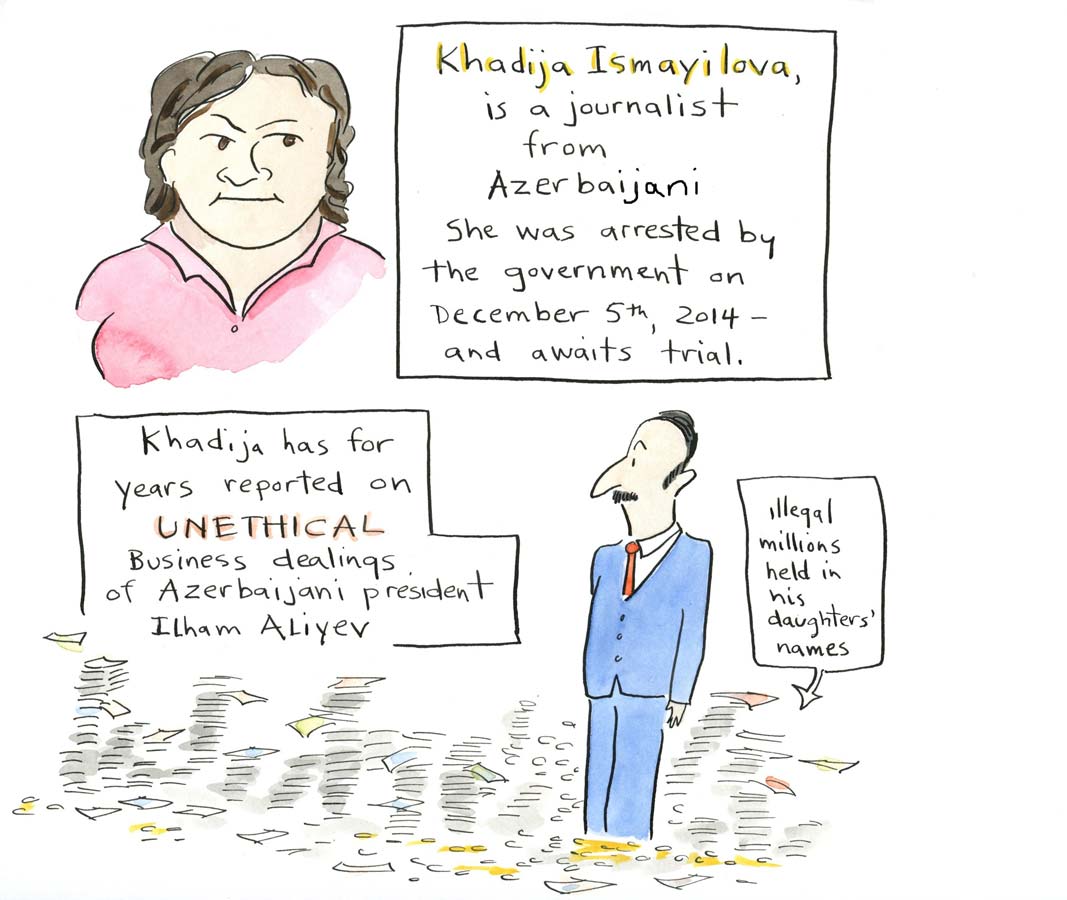 Khadija Ismayilova,
is a journalist
from
Azerbaijani
She was arrested by
the government on
December 5th, 2014 –
and awaits trial.
Khadija has for
years reported on
UNETHICAL
Business dealings
of Azerbaijani president
Ilham Aliyev
illegal
millions
held in
his
daughters'
names